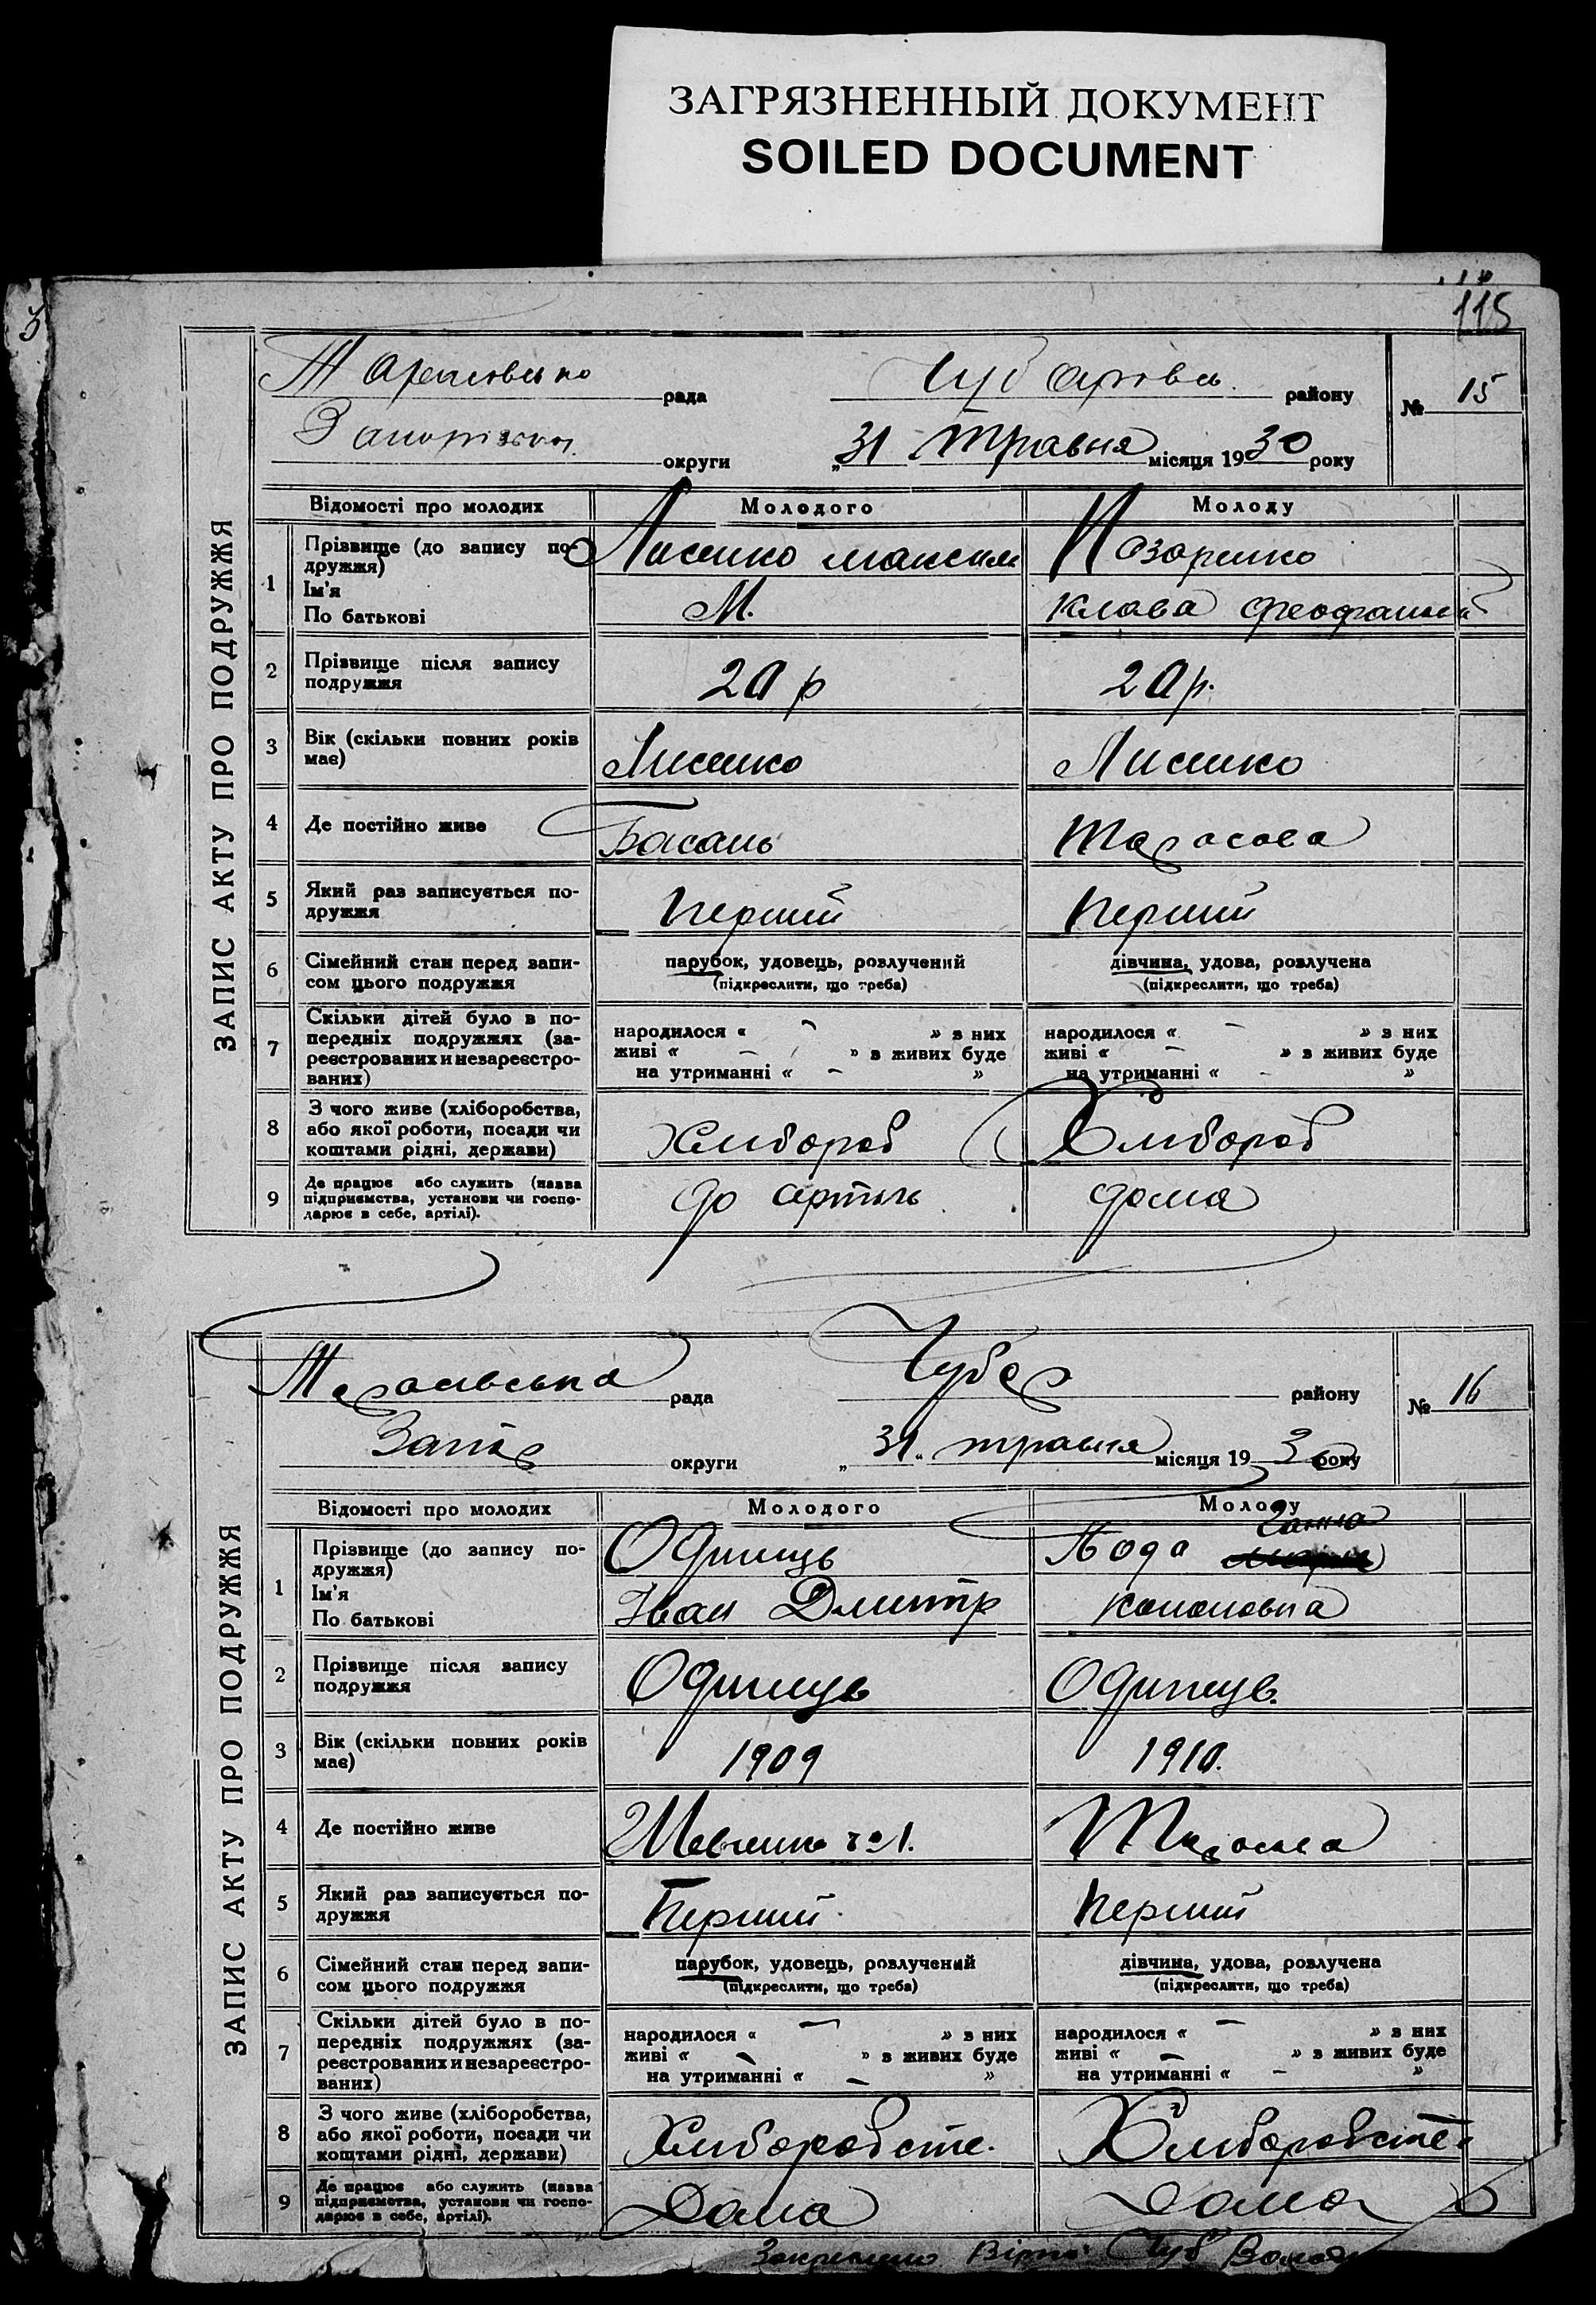 ЗАГРЯЗНЕННЫЙ ДОКУМЕНТ
SOILED DOCUMENT
115
ЗАПИС АКТУ ПРО ПОДРУЖЖЯ
рада Чубарівсь. району № 15
округи „31 Травня місяця 1930 року
Відомості про молодих Молодого Молоду
1 Прізвище (до запису по-
дружжя)
Ім'я
По батькові
Лисенко максим
М.
Назаренко
Клава
2 Прізвище після запису
подружжя
20 р
20 р.
3 Вік (скільки повних років
має)
Лисенко
Лисенко
4 Де постійно живе
Басань
Тарасова
5 Який раз записується по-
дружжя
Перший
Перший
6 Сімейний стан перед запи-
сом цього подружжя
парубок, удовець, розлучений
(підкреслити, що треба)
дівчина, удова, розлучена
(підкреслити, що треба)
7 Скільки дітей було в по-
передніх подружжях (за-
реєстрованих и незареєстро-
ваних)
народилося « – » з них
живі « – » в живих буде
на утриманні « – »
народилося « – » з них
живі « – » в живих буде
на утриманні « – »
8 З чого живе (хліборобства,
або якої роботи, посади чи
коштами рідні, держави)
Хлибороб
Хлибороб
9 Де працює або служить (назва
підприємства, установи чи госпо-
дарює в себе, артілі).
до артіль
дома
ЗАПИС АКТУ ПРО ПОДРУЖЖЯ
Тарасівська рада Чубар району № 16
Запор округи „31„ травня місяця 1930 року
Відомості про молодих Молодого Молоду
1 Прізвище (до запису по-
дружжя)
Ім'я
По батькові
Одинець
Іван Дмитр
Ганна
Лода
Кононовна
2 Прізвище після запису
подружжя
Одинець
Одинець.
3 Вік (скільки повних років
має)
1909
1910.
4 Де постійно живе
Шевченко №1.
Тарасова
5 Який раз записується по-
дружжя
Перший
Перший
6 Сімейний стан перед запи-
сом цього подружжя
парубок, удовець, розлучений
(підкреслити, що треба)
дівчина, удова, розлучена
(підкреслити, що треба)
7 Скільки дітей було в по-
передніх подружжях (за-
реєстрованих и незареєстро-
ваних)
народилося « – » з них
живі « – » в живих буде
на утриманні « – »
народилося « – » з них
живі « – » в живих буде
на утриманні « – »
8 З чого живе (хліборобства,
або якої роботи, посади чи
коштами рідні, держави)
Хлиборобств.
Хлиборобств
9 Де працює або служить (назва
підприємства, установи чи госпо-
дарює в себе, артілі).
Дома
Дома
Закреслено Вірно: